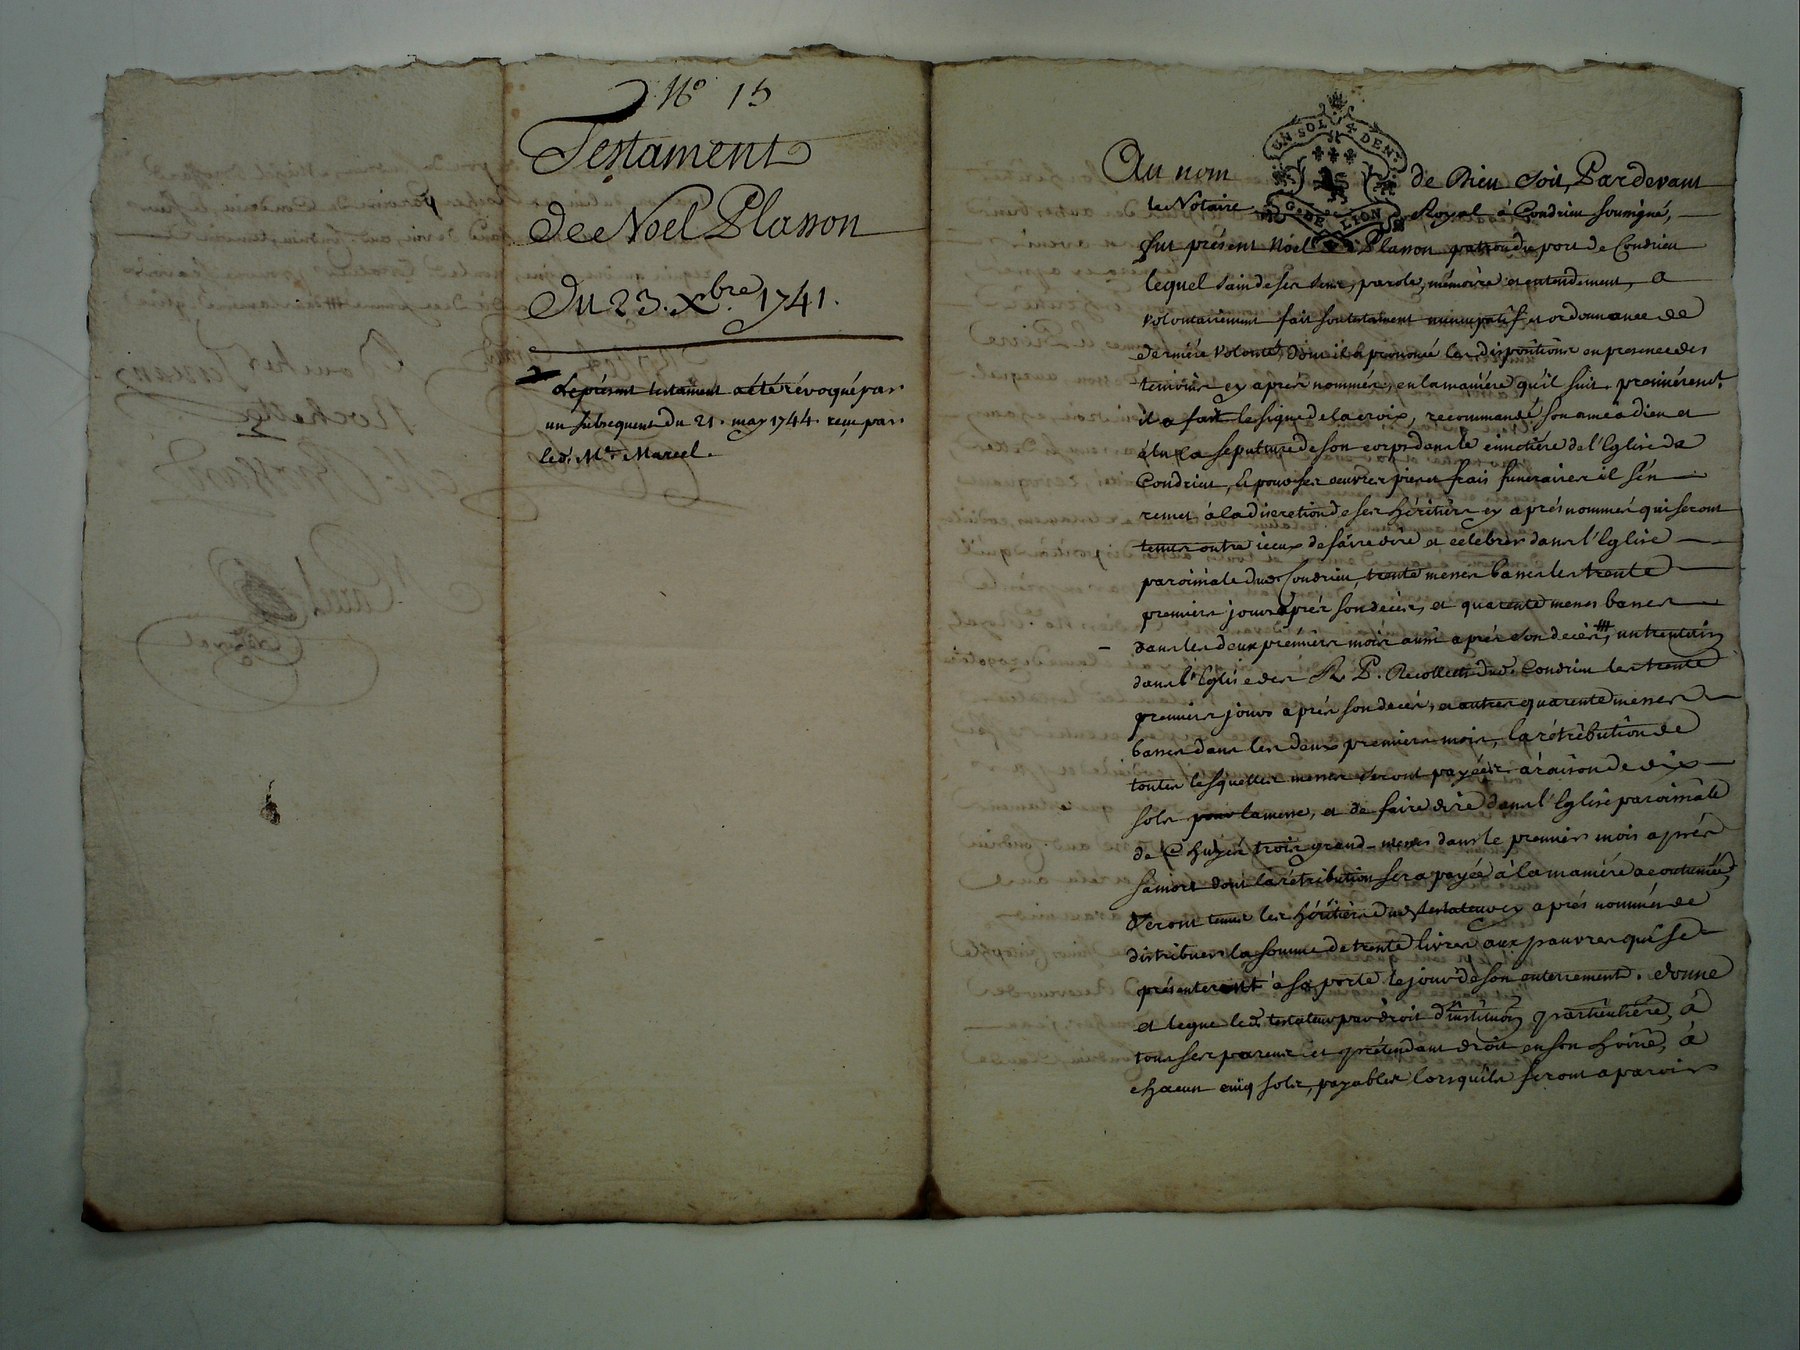 Nº 15
Testament
de Noel Plasson
Du 23. Xbre. 1741.
Le présent testament a été révoqué par
un subsequent du 21. may 1744. reçu par
led. Me. Marcel.
UN SOL 4 DENrs
G. DE LION
Au nom de Dieu soit, Pardevant
le Notaire Royal à Condrieu soussigné,
fut présent Noel Plasson patron du port de Condrieu
lequel sain de ses sens, parole, mémoire et entendement, a
volontairement fait son testament nuncupatif et ordonnance de
derniére volonté, dont il a prononcé les dispositions en presence des
temoins cy aprés nommés, en la maniére qu'il suit. premiérement
il a fait le signe de la croix, recommandé son ame a dieu et
élu la sepulture de son corps dans le cimetiére de l'Eglise de
Condrieu, et pour ses oeuvres pies et frais funeraires il s'en
remet à la discretion de ses héritiers cy aprés nommés qui seront
tenus outre iceux de faire dire et celebrer dans l'Eglise
paroissiale dud. Condrieu, trente messes basses les trente
premiers jours aprés son decés, et quarente messes basses
dans les deux premiers mois aussi aprés son decés, un trentain
dans l'Eglise des R. P. Recollets dud. Condrieu les trente
premiers jours aprés son decés, et autres quarente messes
basses dans les deux premiers mois, la rétribution de
toutes lesquelles messes seront payées à raison de dix
sols pour la messe, et de faire dire dans l'Eglise paroissiale
de Chuyer trois grand-messes dans le premier mois aprés
sa mort dont la rétribution sera payée à la maniére acoutumée,
Seront tenus les héritiers dud. testateur cy aprés nommés de
distribuer la somme de trente livres aux pauvres qui se
présenteront à sa porte le jour de son enterrement. donne
et legue led. testateur par droit d'institution particuliére, à
tous ses parens et prétendant droit en son hoirie, à
chacun cinq sols, payables lorsqu'ils feront aparoir